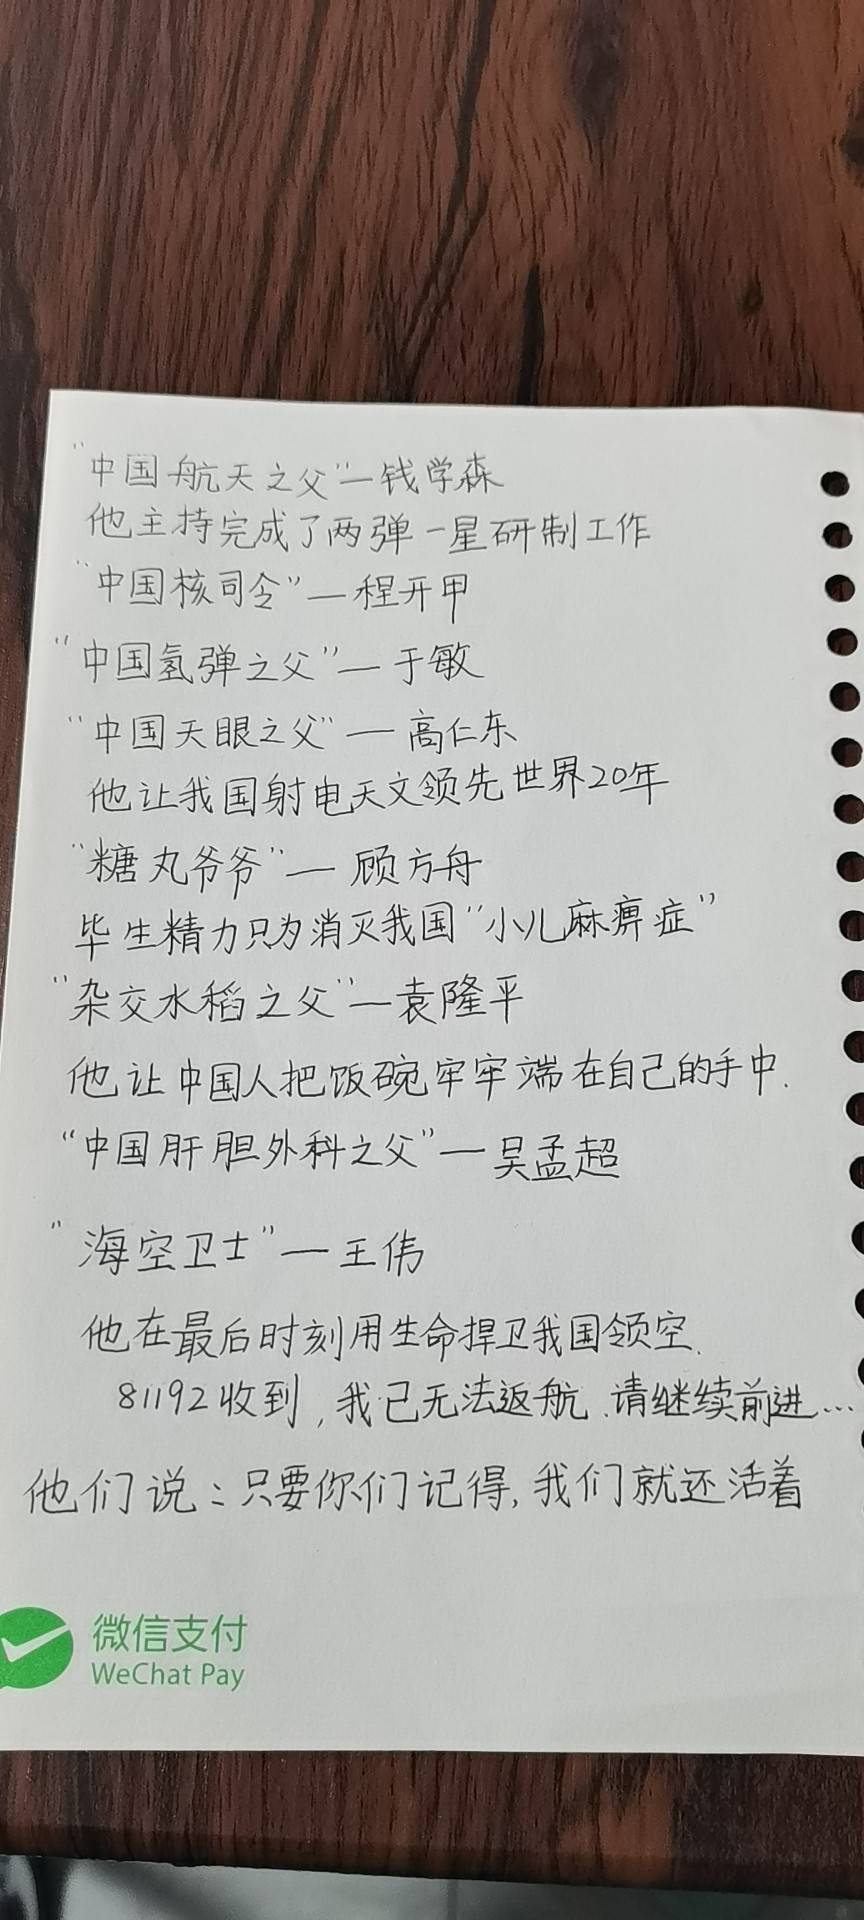 "中国航天之父"—钱学森
他主持完成了两弹一星研制工作
"中国核司令"—程开甲
"中国氢弹之父"—于敏
"中国天眼之父"—高仁东
他让我国射电天文领先世界20年
"糖丸爷爷"—顾方舟
毕生精力只为消灭我国"小儿麻痹症"
"杂交水稻之父"—袁隆平
他让中国人把饭碗牢牢端在自己的手中.
"中国肝胆外科之父"—吴孟超
"海空卫士"—王伟
他在最后时刻用生命捍卫我国领空.
81192收到,我已无法返航.请继续前进...
他们说:只要你们记得,我们就还活着
微信支付
WeChat Pay